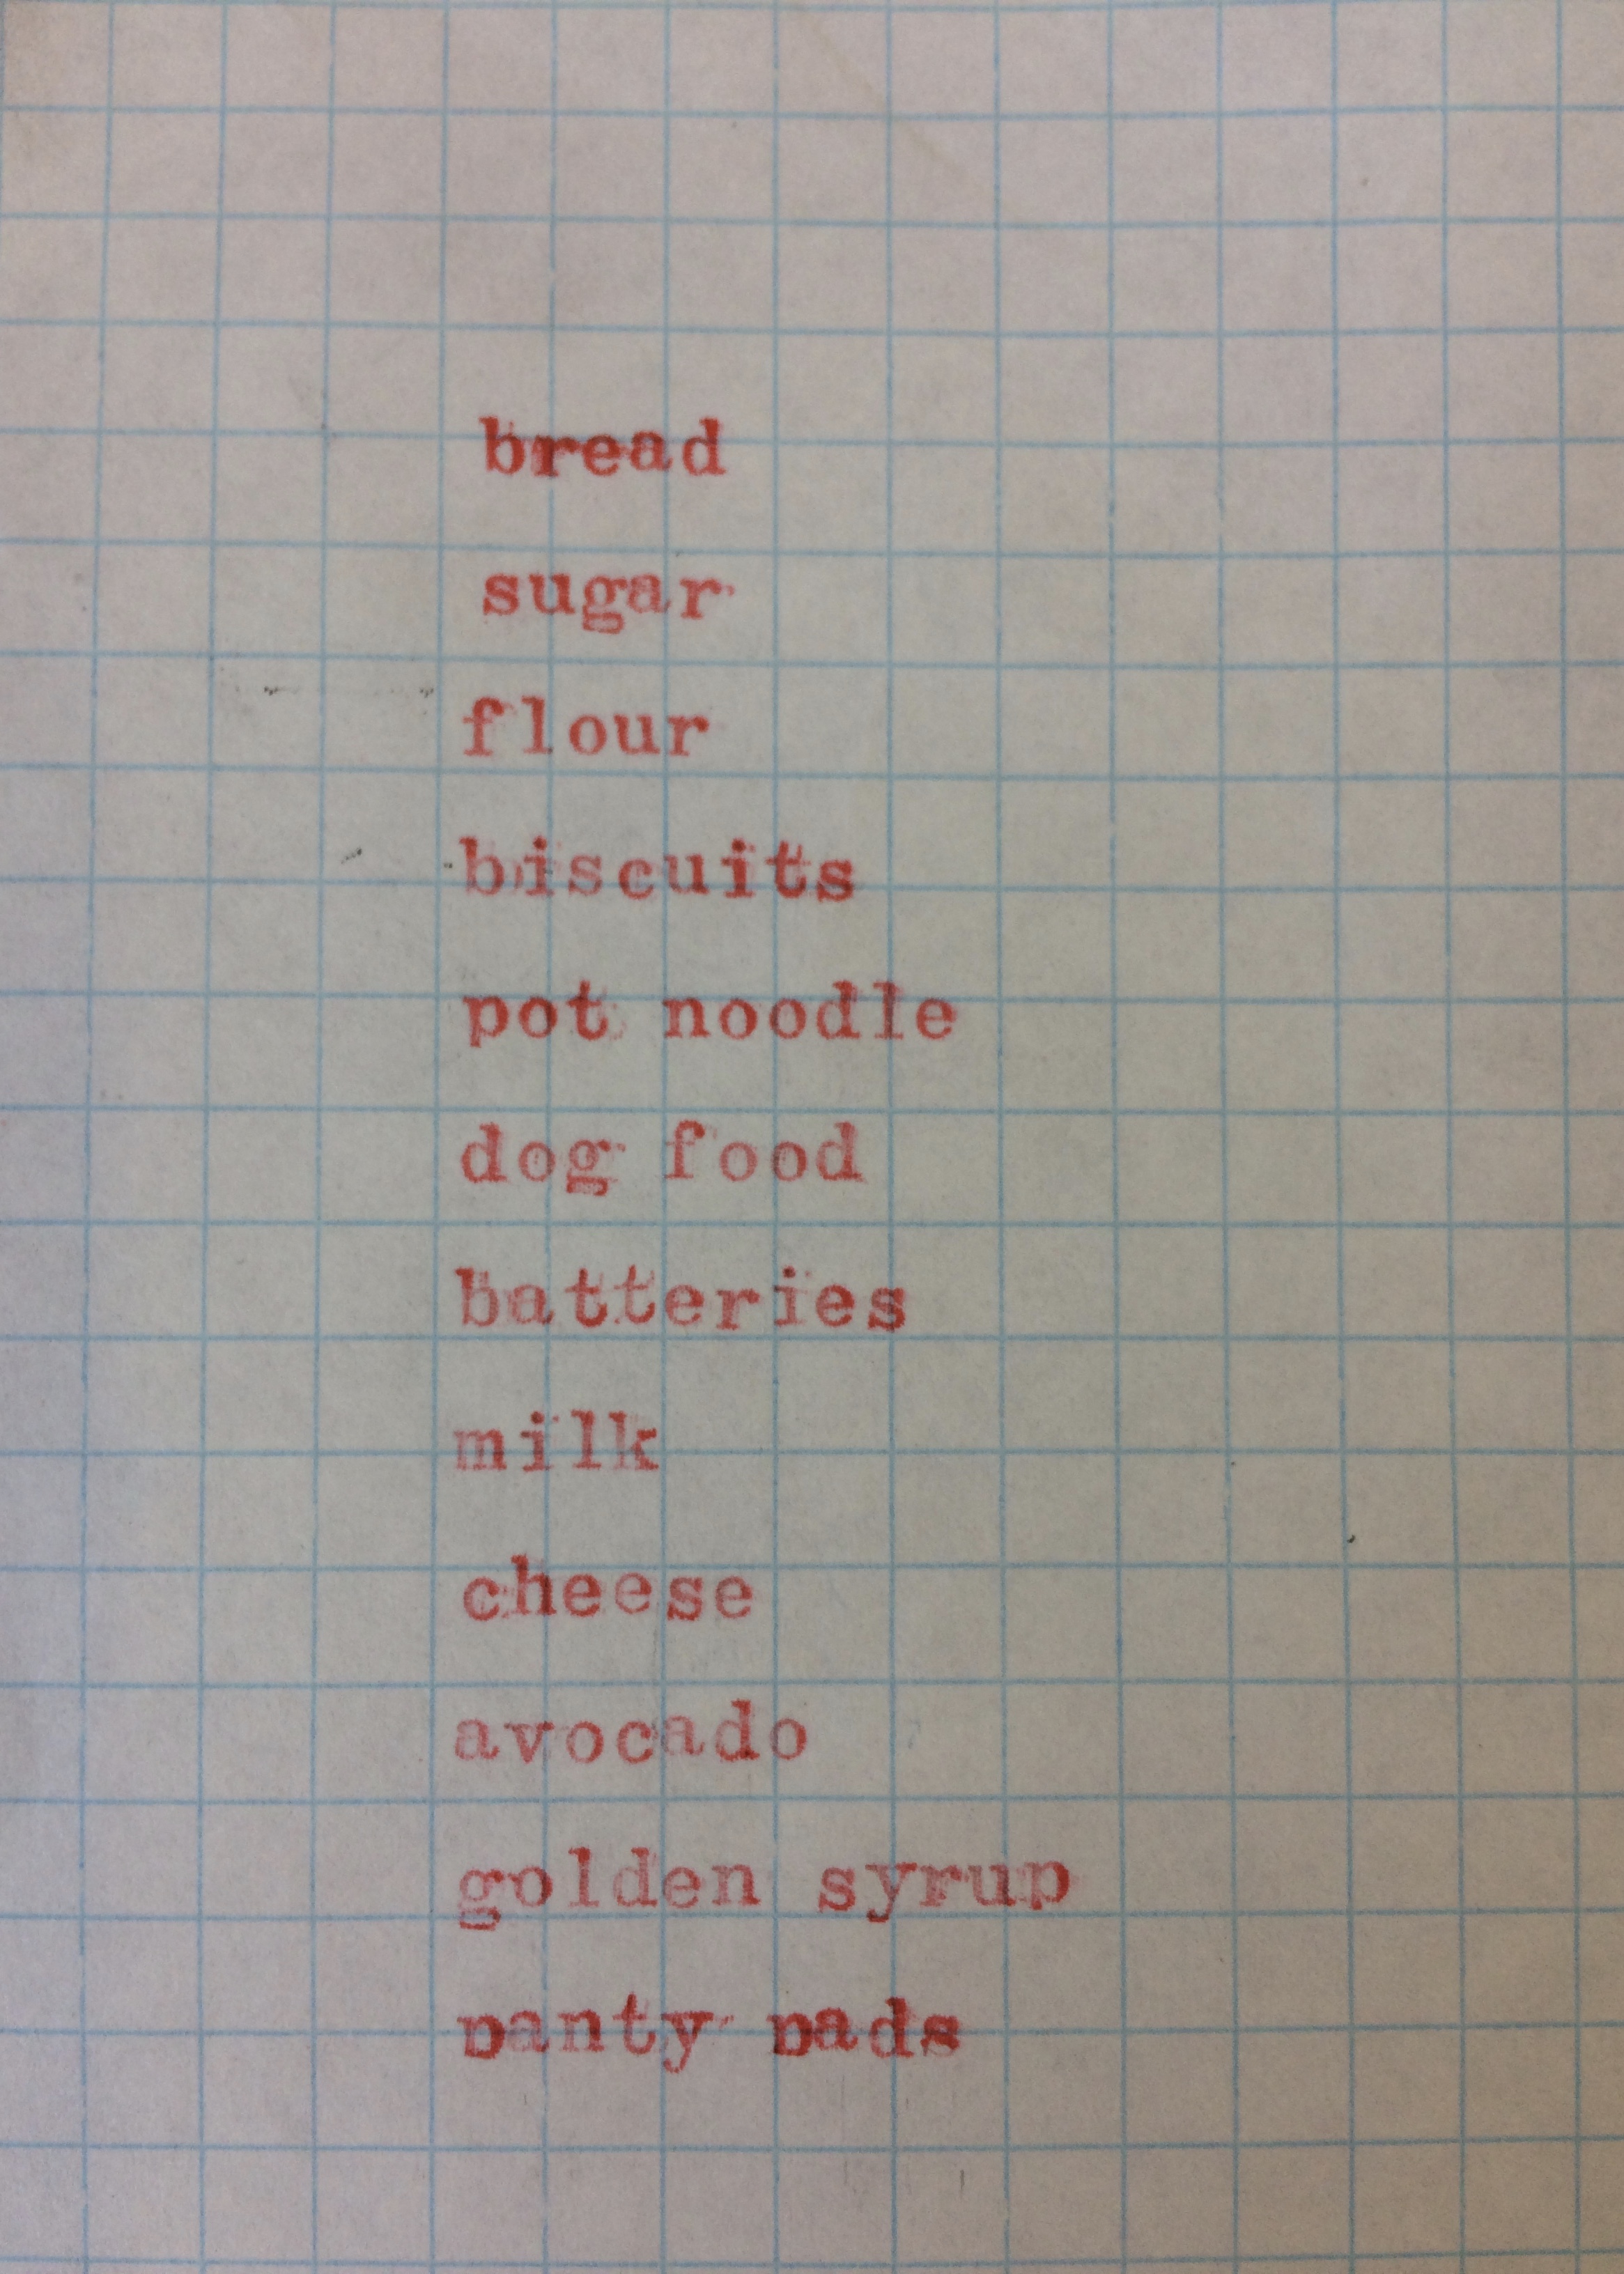 bread
sugar
flour
biscuits
pot noodle
dog food
batteries
milk
cheese
avocado
golden syrup
panty pads